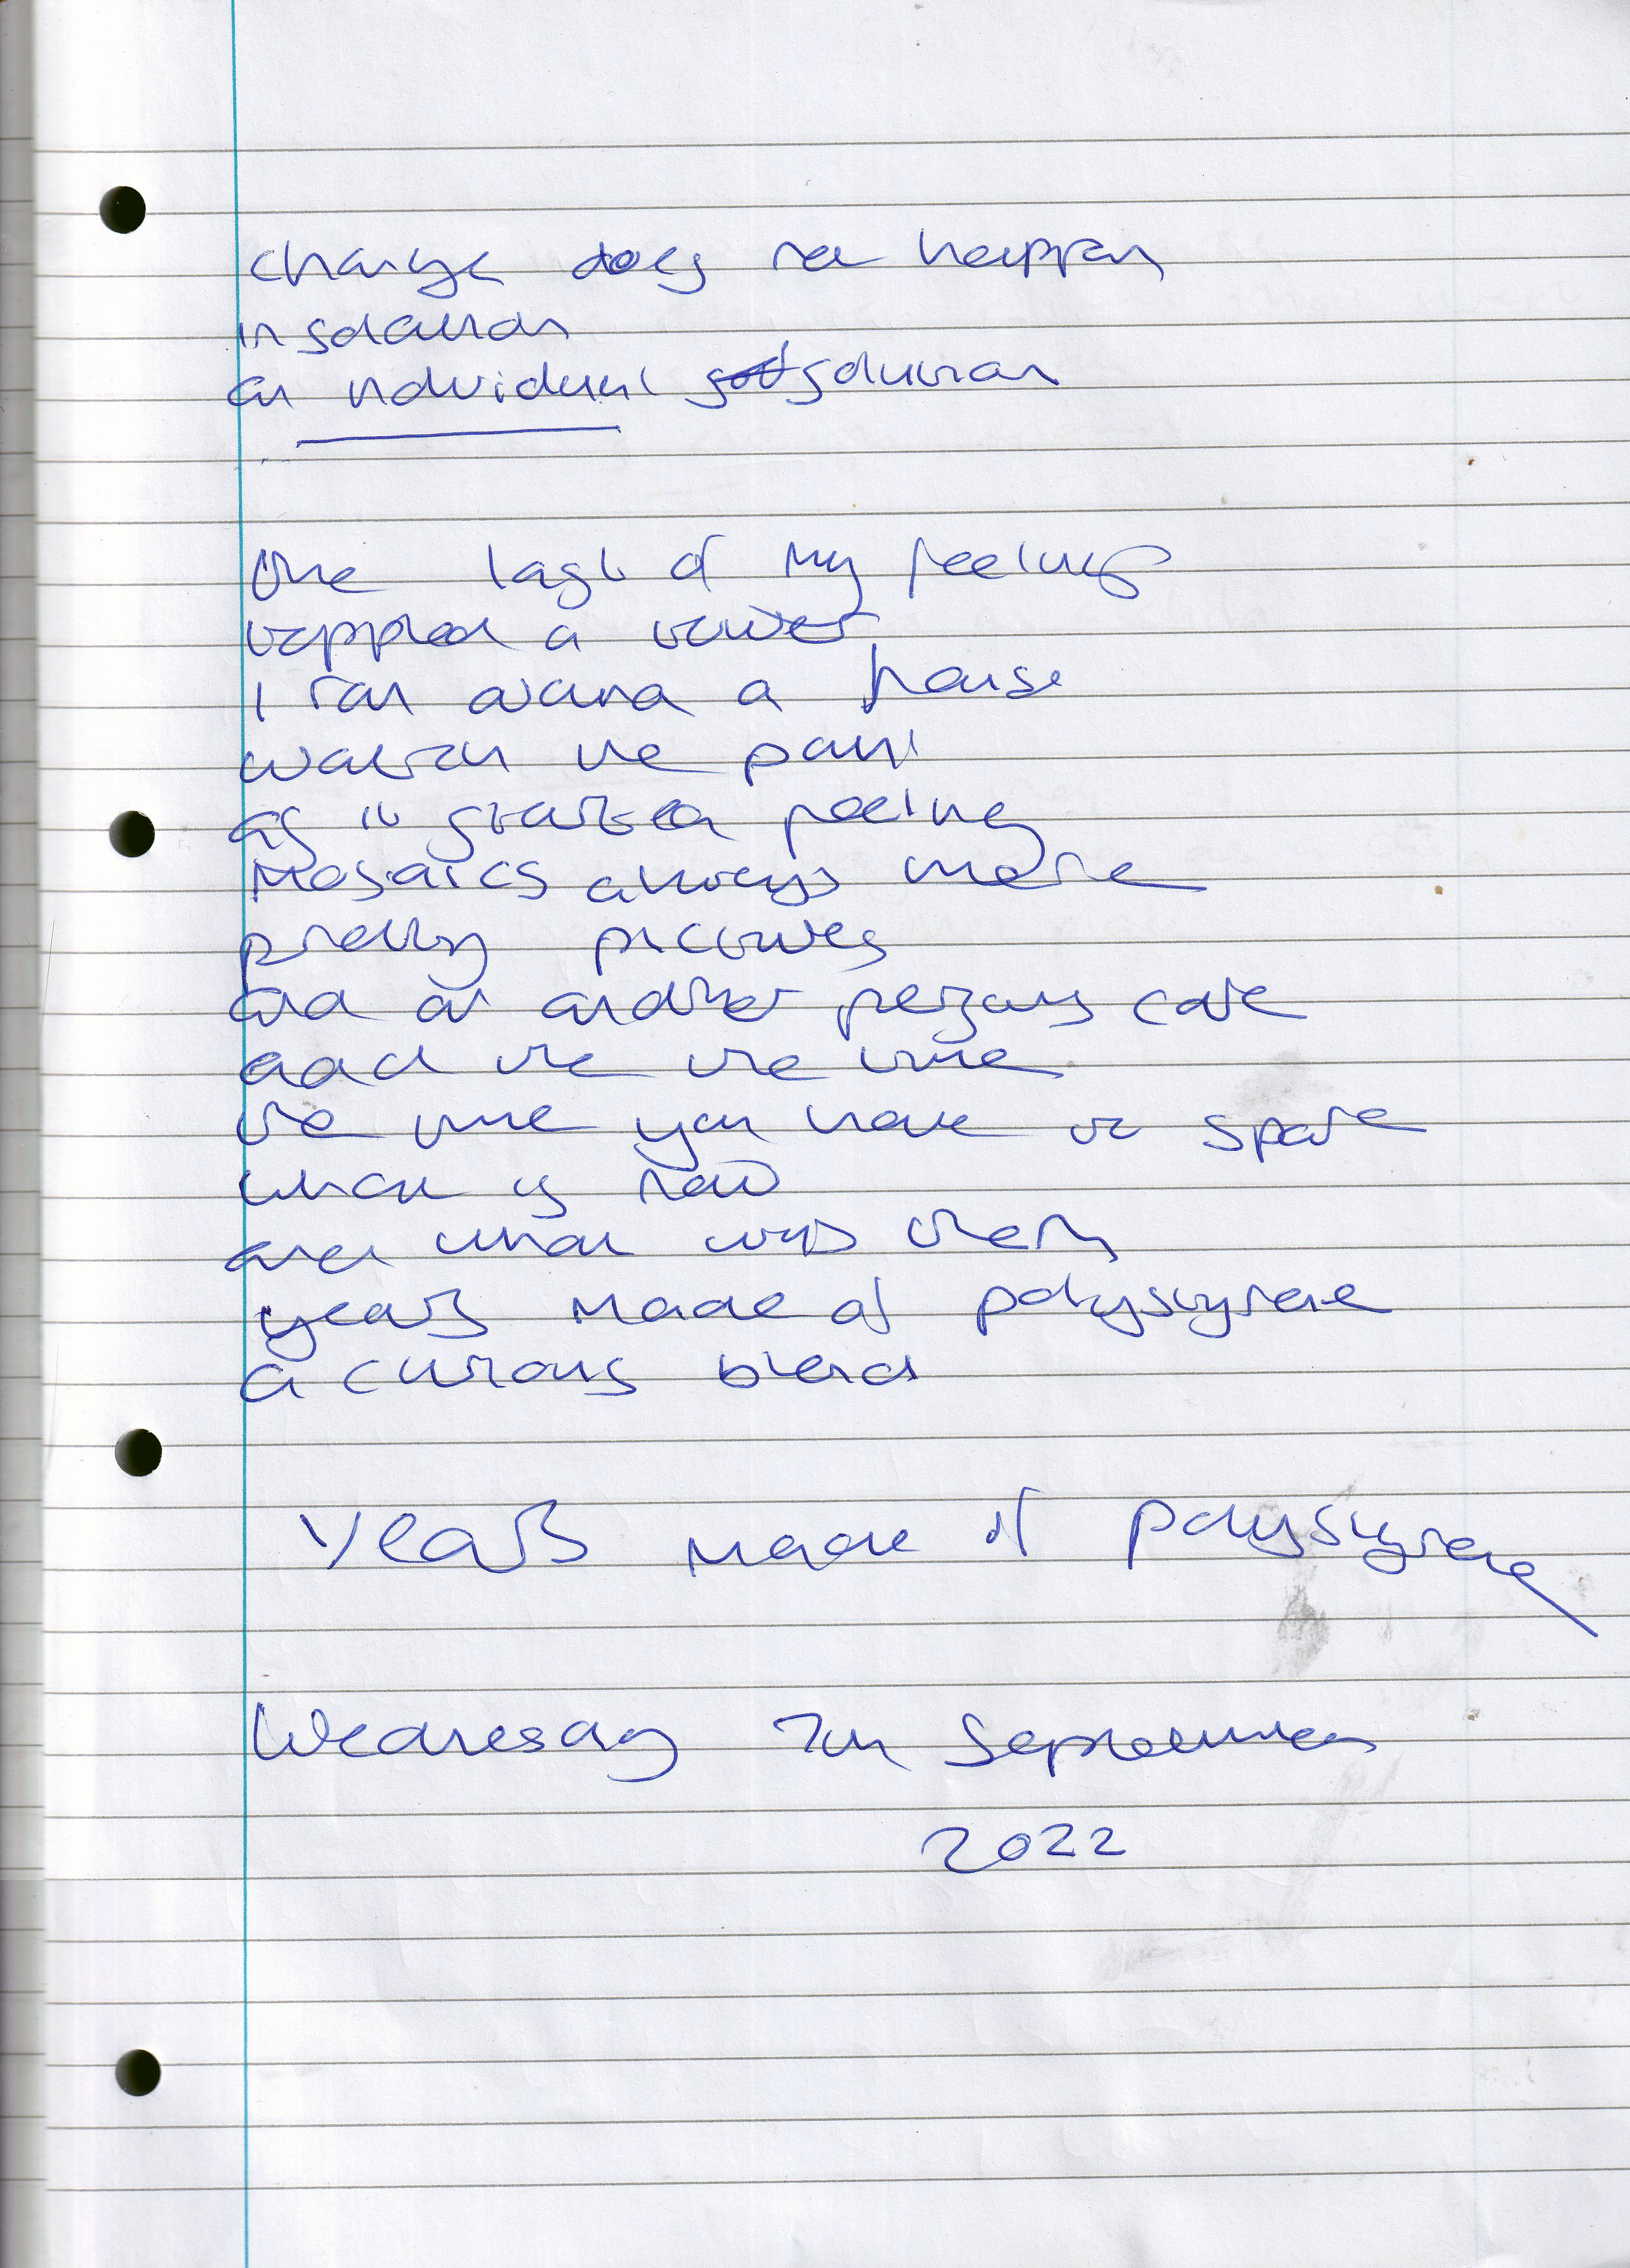 change does not happen
in isolation
an individual solution
One last of my feelings
toppled a tower
I ran around a house
watch the paint
as it started peeling
Mosaics always make
pretty pictures
and at another persons core
add the the time
the time you have to spare
what is now
and what was then
years made of polystyrene
a curious blend
Years made of polystyrene
Wednesday 7th September
2022